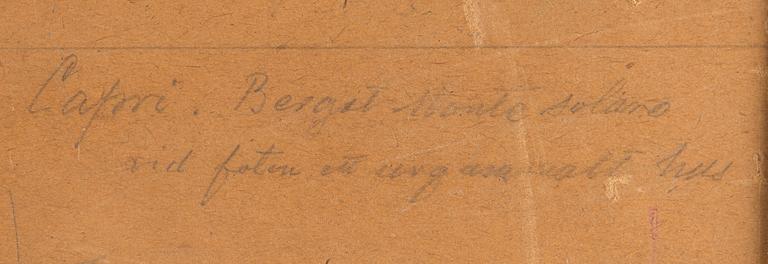 Capri. Berget Monte solaro
vid foten ett urgammalt hus